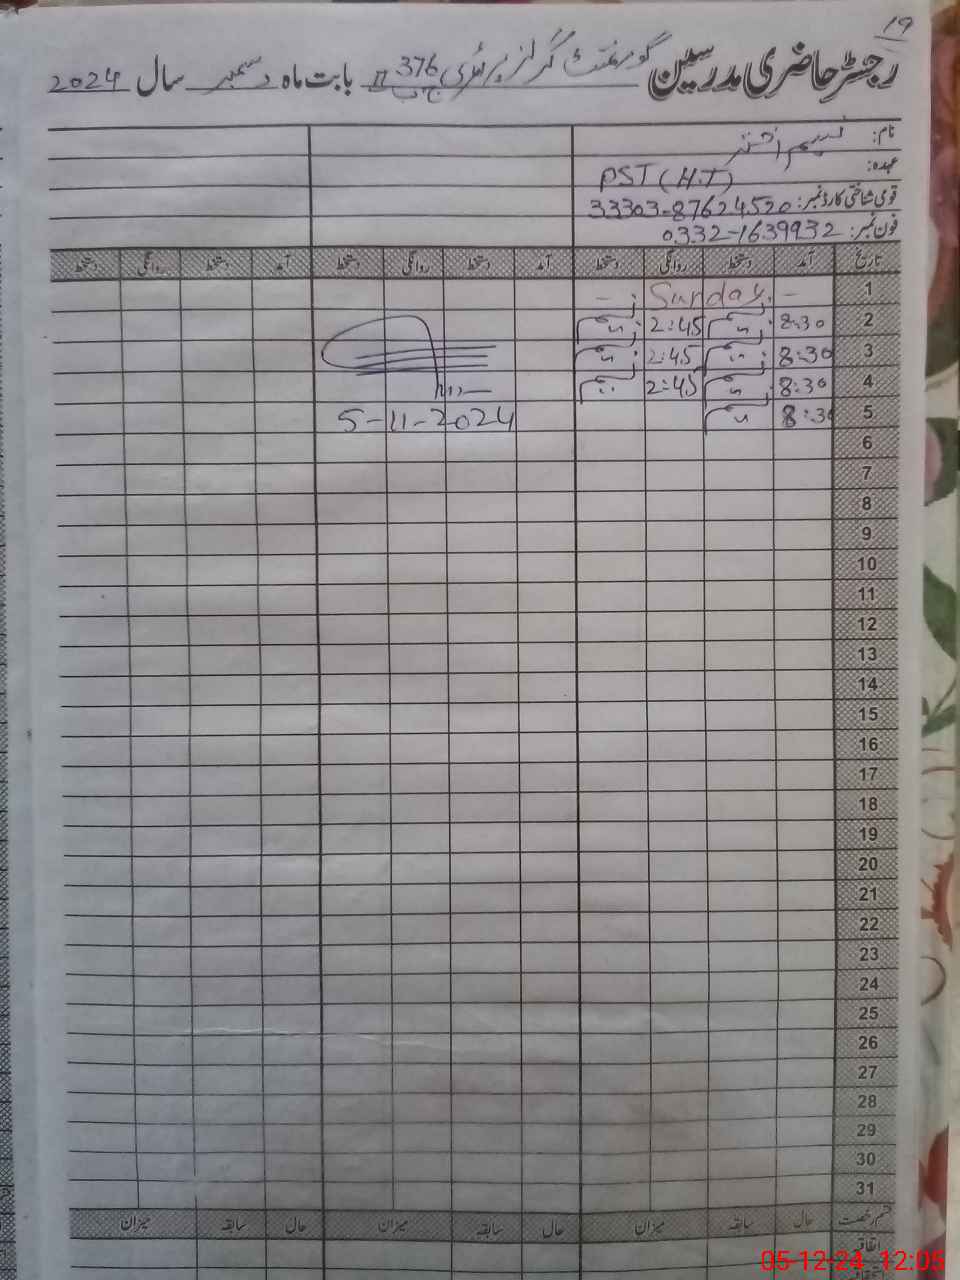 19
رجسٹر حاضری مدرسین گورنمنٹ گرلز پرائمری 376 ج ب II بابت ماہ دسمبر سال 2024
نام: نسیم اختر
عہدہ: PST (H.T)
قومی شناختی کارڈ نمبر: 33303-87624520
فون نمبر: 0332-1639932
تاریخ آمد دستخط روانگی دستخط آمد دستخط روانگی دستخط آمد دستخط روانگی دستخط
1 - Sunday -
2 8:30 2:45
3 8:30 2:45
4 8:30 2:45
5 8:30 5-11-2024
6
7
8
9
10
11
12
13
14
15
16
17
18
19
20
21
22
23
24
25
26
27
28
29
30
31
قسم رخصت حال سابقہ میزان حال سابقہ میزان حال سابقہ میزان
اتفاقیہ
05-12-24 12:05